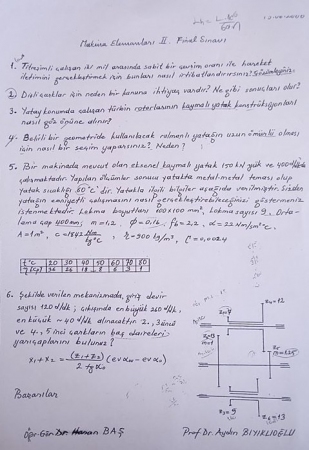 12-06-2000
Makina Elemanları II Final Sınavı
1. Titreşimli çalışan iki mil arasında sabit bir çevrim oranı ile hareket
iletimini gerçekleştirmek için bunları nasıl irtibatlandırırsınız?
2. Dişli çarklar için neden bir kanuna ihtiyaç vardır? Ne gibi sonuçları olur?
3. Yatay konumda çalışan türbin rotorlarının kaymalı yatak konstrüksiyonları
nasıl göz önüne alınır?
4. Belirli bir geometride kullanılacak rulmanlı yatağın uzun ömürlü olması
için nasıl bir seçim yaparsınız? Neden?
5. Bir makinada mevcut olan eksenel kaymalı yatak 150 kN yük ve 400 d/dk
çalışmaktadır. Yapılan ölçümler sonucu yatakta metal-metal teması olup
yatak sıcaklığı 80°C dir. Yatakla ilgili bilgiler aşağıda verilmiştir. Sizden
yatağın emniyetli çalışmasını nasıl gerçekleştirebileceğinizi göstermeniz
istenmektedir. Lokma boyutları 100x100 mm², Lokma sayısı 9. Orta-
lama çap 400 mm; m=1,2
A=1m², ρ=900 kg/m³
t°C 20 30 40 50 60 70 80
6. Şekilde verilen mekanizmada, giriş devir
sayısı 120 d/dk; çıkışında en büyük 260 d/dk,
en küçük ~40 d/dk alınacaktır. 2., 3üncü
ve 4., 5inci çarkların baş daireleri
yarıçaplarını bulunuz?
x₁+x₂ = (z₁+z₂) / 2 tgα₀ (evα - evα₀)
Başarılar
z₆=13
Öğr.Gör.Dr. Hasan BAŞ
Prof.Dr. Aydın BIYIKLIOĞLU